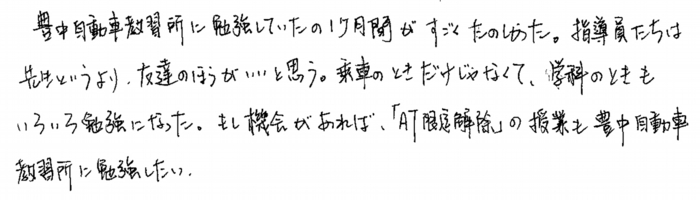 豊中自動車教習所に勉強していたの1ヶ月間がすごくたのしかった。指導員たちは
先生というより、友達のほうがいいと思う。乗車のときだけじゃなくて、学科のときも
いろいろ勉強になった。もし機会があれば、「AT限定解除」の授業も豊中自動車
教習所に勉強したい。